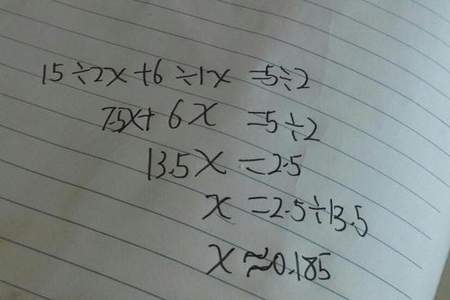 15÷2x+6÷1x=5÷2
7.5x+6x=5÷2
13.5x=2.5
x=2.5÷13.5
x≈0.185